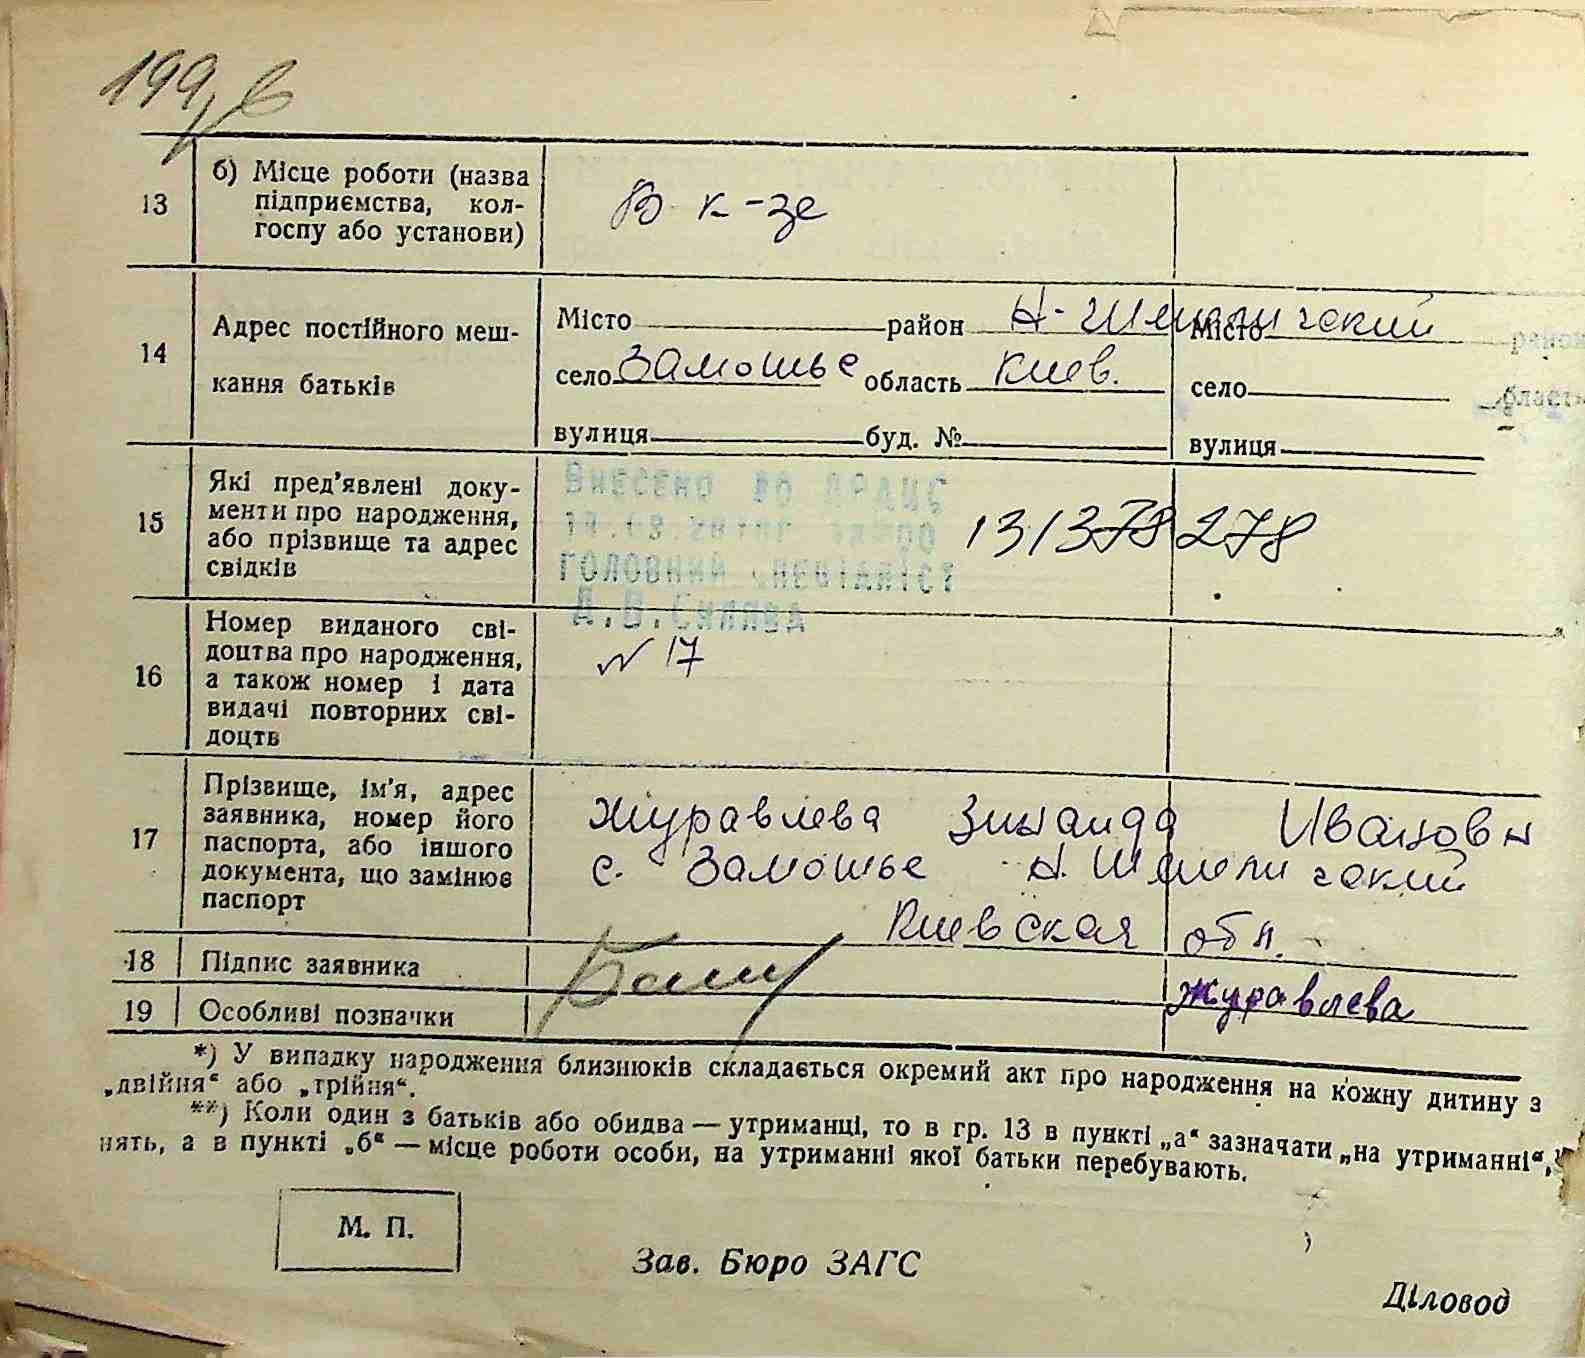 199
13
б) Місце роботи (назва
підприємства, кол-
госпу або установи)
В к-зе
14
Адрес постійного меш-
кання батьків
Місто район Н-Шепеличский Місто район
село Замошье область Киев. село область
вулиця буд. № вулиця
15
Які пред'явлені доку-
менти про народження,
або прізвище та адрес
свідків
Внесено до ДРАЦС
головний спеціаліст
131378 278
16
Номер виданого сві-
доцтва про народження,
а також номер і дата
видачі повторних сві-
доцтв
№ 17
17
Прізвище, ім'я, адрес
заявника, номер його
паспорта, або іншого
документа, що замінює
паспорт
Журавлева Зинаида Ивановн
с. Замошье Н. Шепеличский
Киевская обл.
18 Підпис заявника
Журавлева
19 Особливі позначки
*) У випадку народження близнюків складається окремий акт про народження на кожну дитину з
„двійня“ або „трійня“.
**) Коли один з батьків або обидва — утриманці, то в гр. 13 в пункті „а“ зазначати „на утриманні“,
нять, а в пункті „б“ — місце роботи особи, на утриманні якої батьки перебувають.
М. П.
Зав. Бюро ЗАГС
Діловод